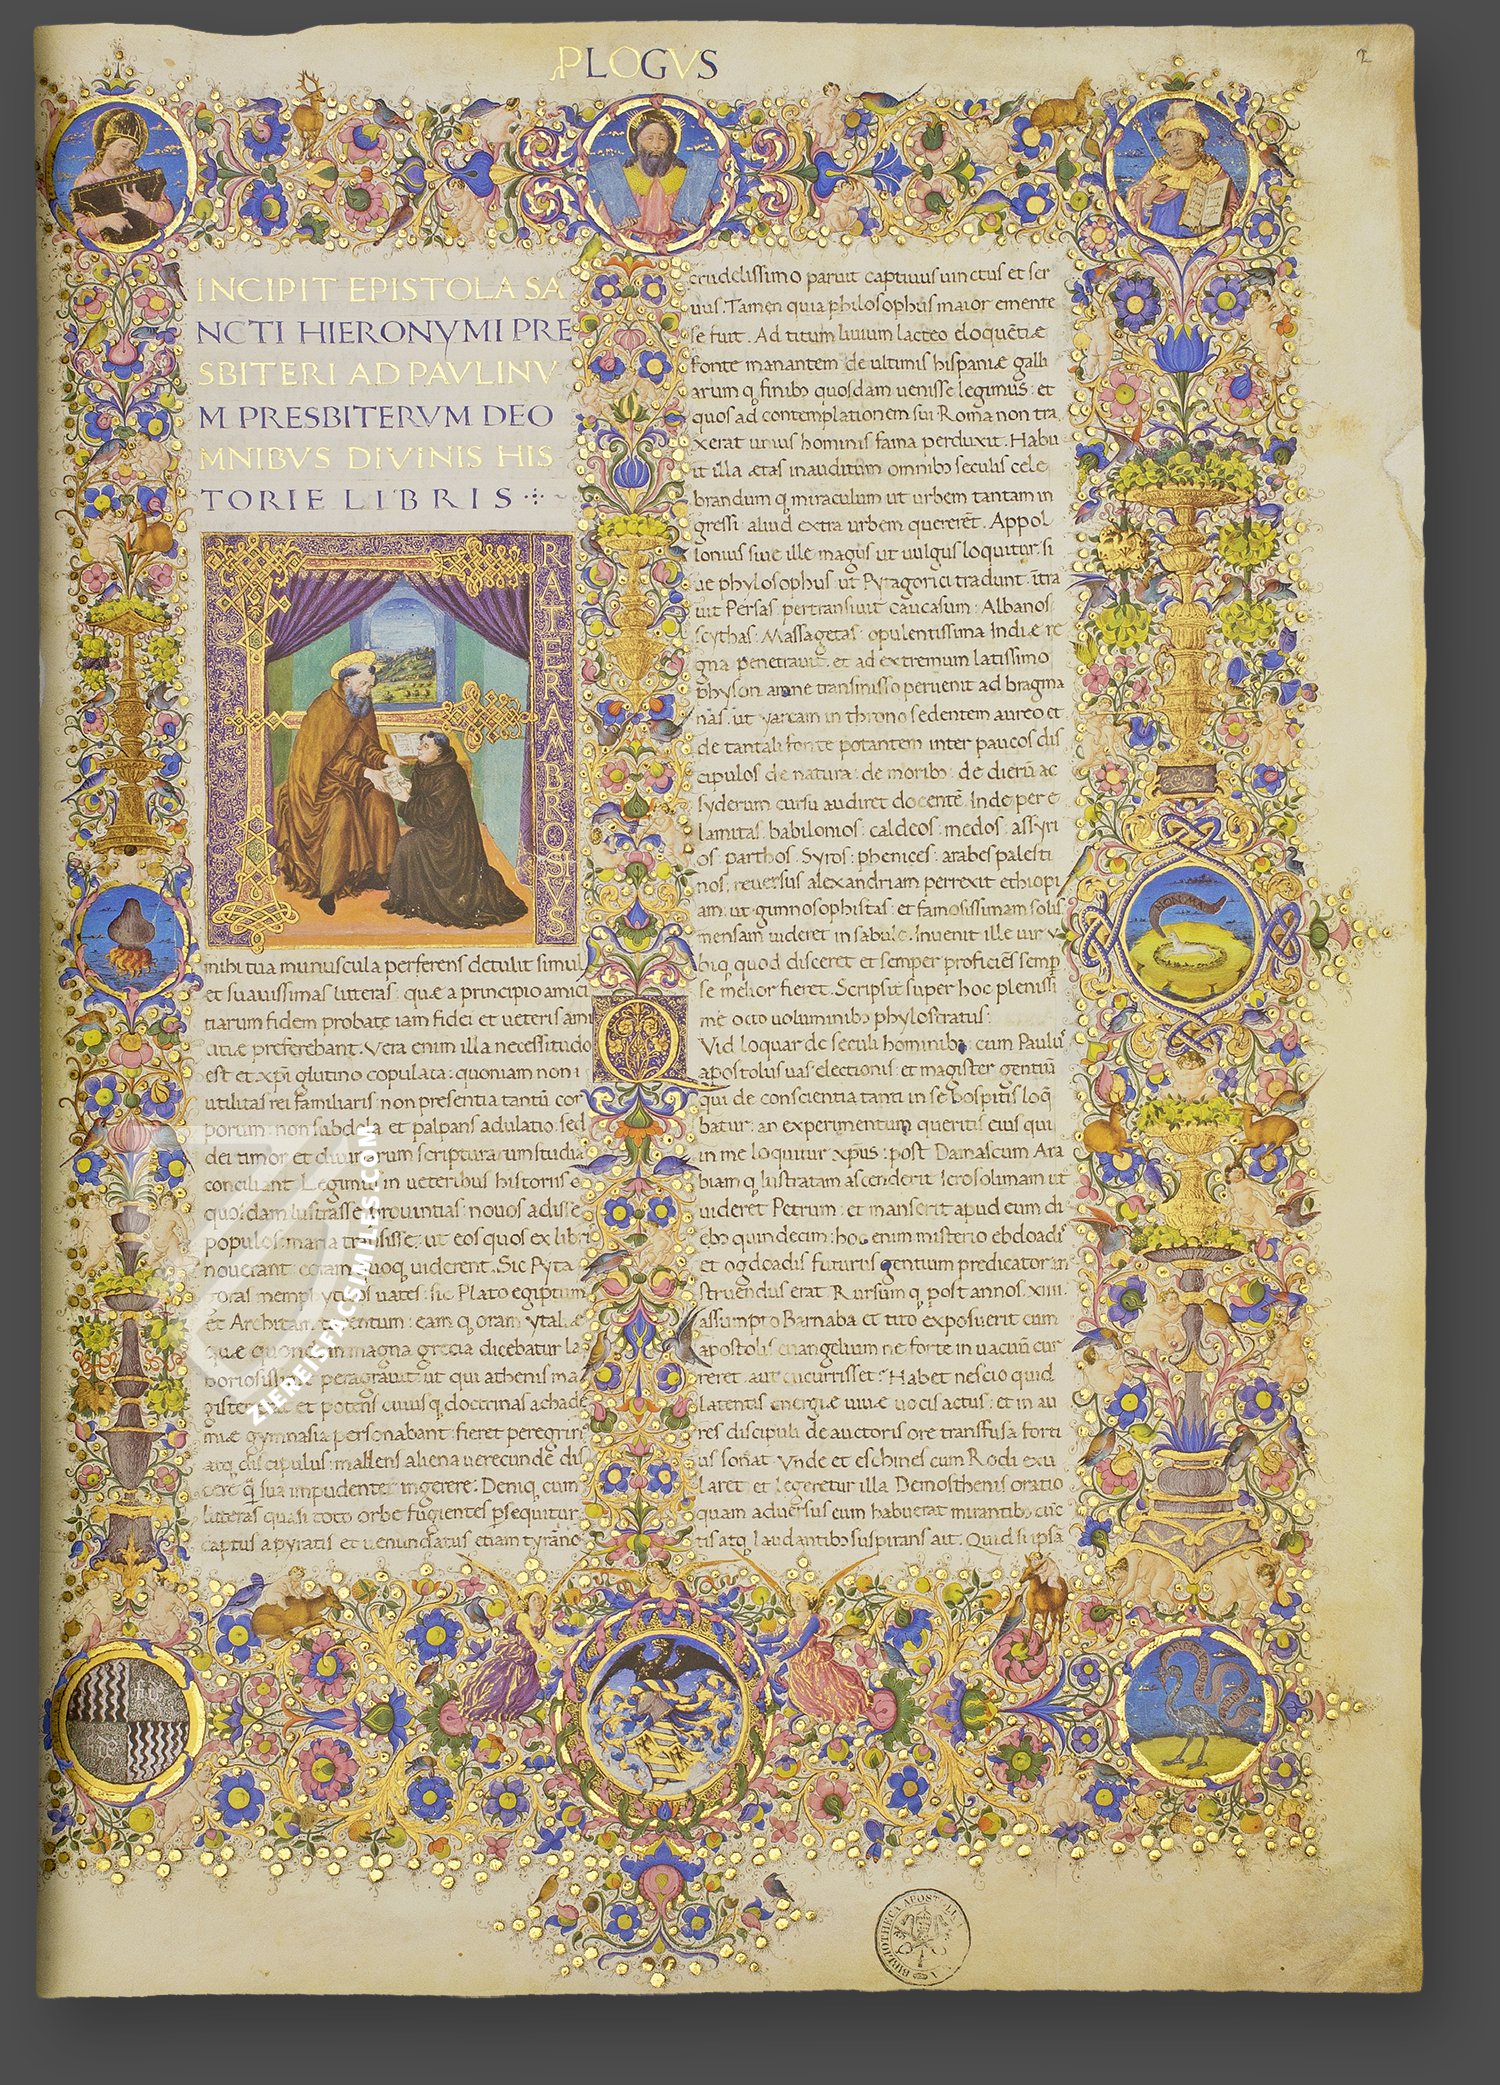 PLOGVS
2
INCIPIT EPISTOLA SA
NCTI HIERONYMI PRE
SBITERI AD PAVLINV
M PRESBITERVM DEO
MNIBVS DIVINIS HIS
TORIE LIBRIS
FRATER AMBROSVS
mihi tua munuscula perferens detulit simul
et suavissimas litteras: quæ a principio amici
tiarum fidem probate iam fidei et veteris ami
citiæ preferebant. Vera enim illa necessitudo
est et xpi glutino copulata: quoniam non
utilitas rei familiaris non presentia tantū cor
porum: non subdola et palpans adulatio: sed
dei timor et divinarum scripturarum studia
conciliant. Legimus in veteribus historiis
quosdam lustrasse provintias: novos adisse
populos: maria transisse: ut eos quos ex libris
noverant: coram quoq viderent. Sic Pyta
goras memphyticos vates: sic Plato egiptum
et Architam tarentum: eam q oram ytaliæ
quæ quondam magna grecia dicebatur la
boriosissime peragravit: ut qui athenis ma
gister erat et potens cuius q doctrinas achade
miæ gymnasia personabant: fieret peregrin
atq discipulus: mallens aliena verecunde dis
cere q̄ sua impudenter ingerere. Deniq cum
litteras quasi toto orbe fugientes psequitur
captus a pyratis et venundatus etiam tyranno
crudelissimo paruit captivus vinctus et ser
vus. Tamen quia philosophus maior emente
se fuit. Ad titum livium lacteo eloquētiæ
fonte manantem de ultimis hispaniæ galli
arum q finibꝫ quosdam venisse legimus: et
quos ad contemplationem sui Roma non tra
xerat unius hominis fama perduxit. Habu
it illa ætas inauditum omnibꝫ seculis cele
brandum q miraculum ut urbem tantam in
gressi aliud extra urbem quererēt. Appol
lonius sive ille magus ut vulgus loquitur si
ve phylosophus ut Pytagorici tradunt ītra
vit Persas: pertransivit caucasum: Albanos
scythas: Massagetas: opulentissima Indiæ re
gna penetravit: et ad extremum latissimo
physon amne transmisso pervenit ad bragma
nas. ut yarcam in throno sedentem aureo et
de tantali fonte potantem inter paucos dis
cipulos de natura: de moribꝫ: de dierū ac
syderum cursu audiret docentē. Inde per e
lamitas: babilonios: caldeos: medos: assyri
os: parthos: Syros: phenices: arabes palesti
nos. reversus alexandriam perrexit ethiopi
am: ut gimnosophistas: et famosissimam solis
mensam videret in sabulo. Invenit ille vir v
biq quod disceret et semper proficiēs semp
se melior fieret. Scripsit super hoc plenissi
me octo voluminibꝫ phylostratus:
Q Vid loquar de seculi hominibꝫ: cum Paulus
apostolus vas electionis et magister gentiū
qui de conscientia tanti in se hospitis loq
batur: an experimentum queritis eius qui
in me loquitur xp̄us: post Damascum Ara
biam q lustratam ascenderit Ierosolimam ut
videret Petrum: et manserit apud eum di
ebꝫ quindecim: hoc enim misterio ebdoadis
et ogdoadis futurus gentium predicator in
struendus erat. Rursum q post annos .xiiii.
assumpto Barnaba et tito exposuerit cum
apostolis euangelium ne forte in vacuū cur
reret aut cucurrisset. Habet nescio quid
latentis energiæ vivæ vocis actus: et in au
res discipuli de auctoris ore transfusa forti
us sonat. Vnde et eschines cum Rodi exu
laret et legeretur illa Demosthenis oratio
quam adversus eum habuerat mirantibꝫ cūc
tis atq laudantibꝫ suspirans ait. Quid si ipsā
NON MAI
ZIEREISFACSIMILES.COM